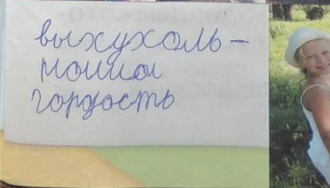 выхухоль –
наша
гордость